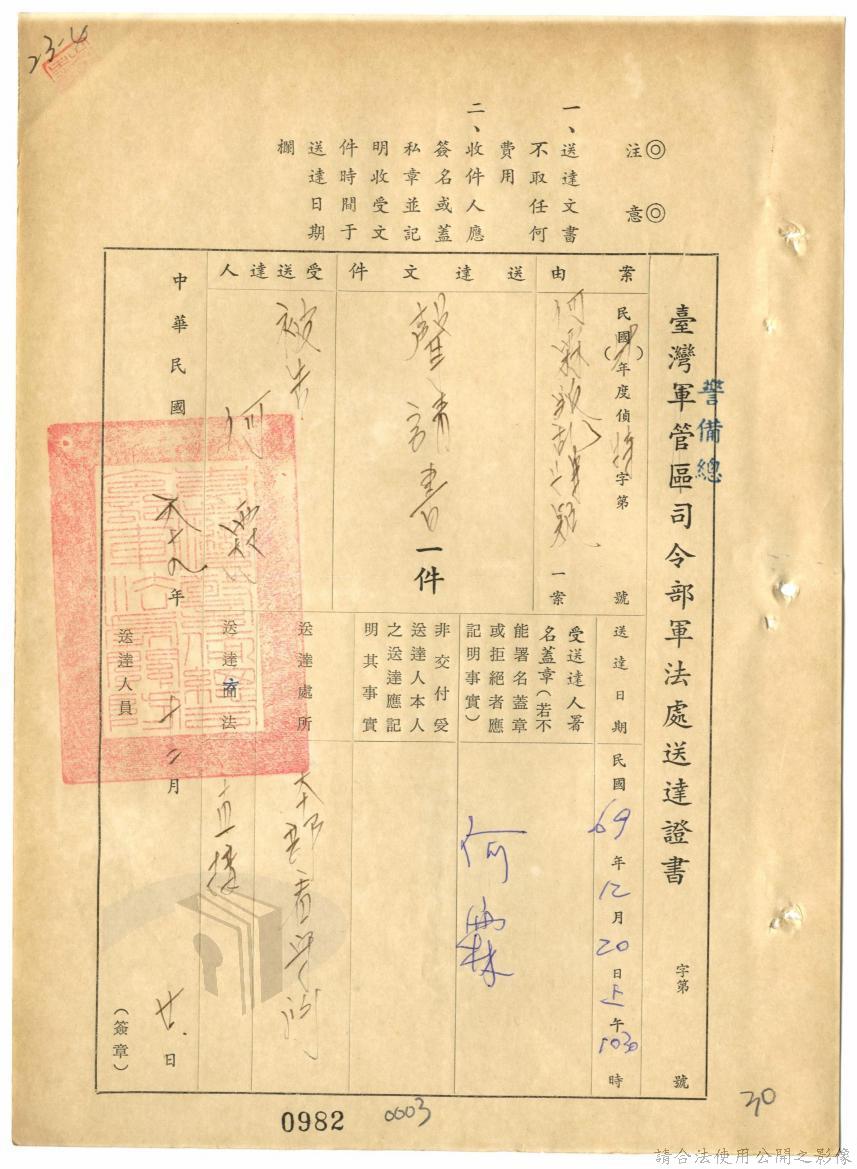 23-4
◎注意◎
一、送達文書
不取任何
費用
二、收件人應
簽名或蓋
私章並記
明收受文
件時間于
送達日期
欄
警備總
臺灣軍管區司令部軍法處送達證書
字第
號
案由
民國()年度偵字第
號
何霖叛亂嫌疑
一案
送達文件
聲請書
一件
受送達人
被告
何霖
送達日期
民國69年12月20日上午1030時
受送達人署
名蓋章(若不
能署名蓋章
或拒絕者應
記明事實)
何霖
非交付受
送達人本人
之送達應記
明其事實
送達處所
本部看守所
送達方法
直接
中華民國六十九年十二月廿日
送達人員
(簽章)
0982
0003
30
請合法使用公開之影像